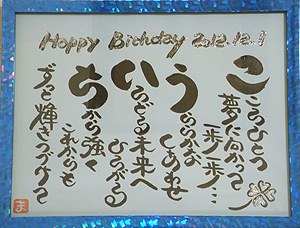 Happy Birthday 2012.12.1
こころひとつ
夢に向かって
一歩一歩…
うららかな
しあわせ
いろどる未来へ
ひろがる
ちから強く
これからも
ずっと輝きつづけて
ま